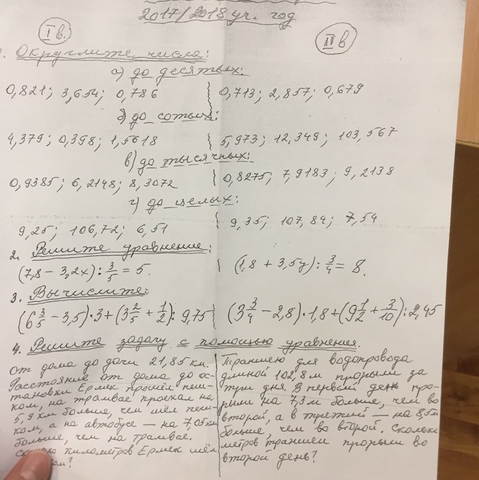 2017/2018 уч. год
I в. II в
1. Округлите числа:
а) до десятых:
0,821; 3,654; 0,786 0,713; 2,857; 0,679
б) до сотых:
4,379; 0,398; 1,5618 5,973; 12,349; 103,567
в) до тысячных:
0,9385; 6,2148; 8,3072 0,8275, 7,9183; 9,2138
г) до целых
9,25; 106,72; 6,51 9,35; 107,84; 7,54
2. Решите уравнение:
(7,8 – 3,2x) : 3/5 = 5. (1,8 + 3,5y) : 3/4 = 8.
3. Вычислите:
(6 3/5 – 3,5) · 3 + (3 2/5 + 1/2) : 9,75 (3 3/4 – 2,8) · 1,8 + (9 1/2 + 3/10) : 2,45
4. Решите задачу с помощью уравнения.
От дома до дачи 21,85 км.
Расстояние от дома до ос-
тановки Ермек прошёл пеш-
ком, на трамвае проехал на
5,9 км больше, чем шёл пеш-
ком, а на автобусе — на 7,05 км
больше, чем на трамвае.
километров Ермек шёл
Траншею для водопровода
длиной 102,8 м прорыли за
три дня. В первый день про-
рыли на 7,3 м больше, чем во
второй, а в третий — на 8,5 м
больше, чем во второй. Сколько
метров траншеи прорыли во
второй день?